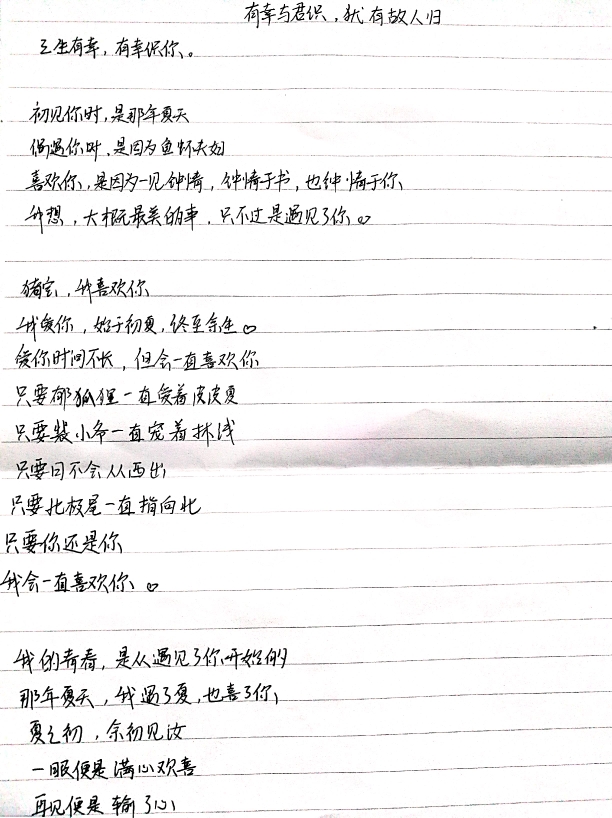 有幸与君识，犹有故人归
三生有幸，有幸识你。
初见你时，是那年夏天
偶遇你时、是因为鱼怀夫妇
喜欢你，是因为一见钟情，钟情于书，也钟情于你
我想，大概最美的事，只不过是遇见了你。
猪宝，我喜欢你
我爱你，始于初夏，终至余生
爱你时间不长，但会一直喜欢你
只要郁狐狸一直爱着皮皮夏
只要裴小爷一直宠着林浅
只要日不会从西出
只要北极星一直指向北
只要你还是你
我会一直喜欢你、
我的青春，是从遇见了你开始的
那年夏天，我遇了夏，也喜了你
夏之初，余初见汝
一眼便是满心欢喜
再见便是输了心